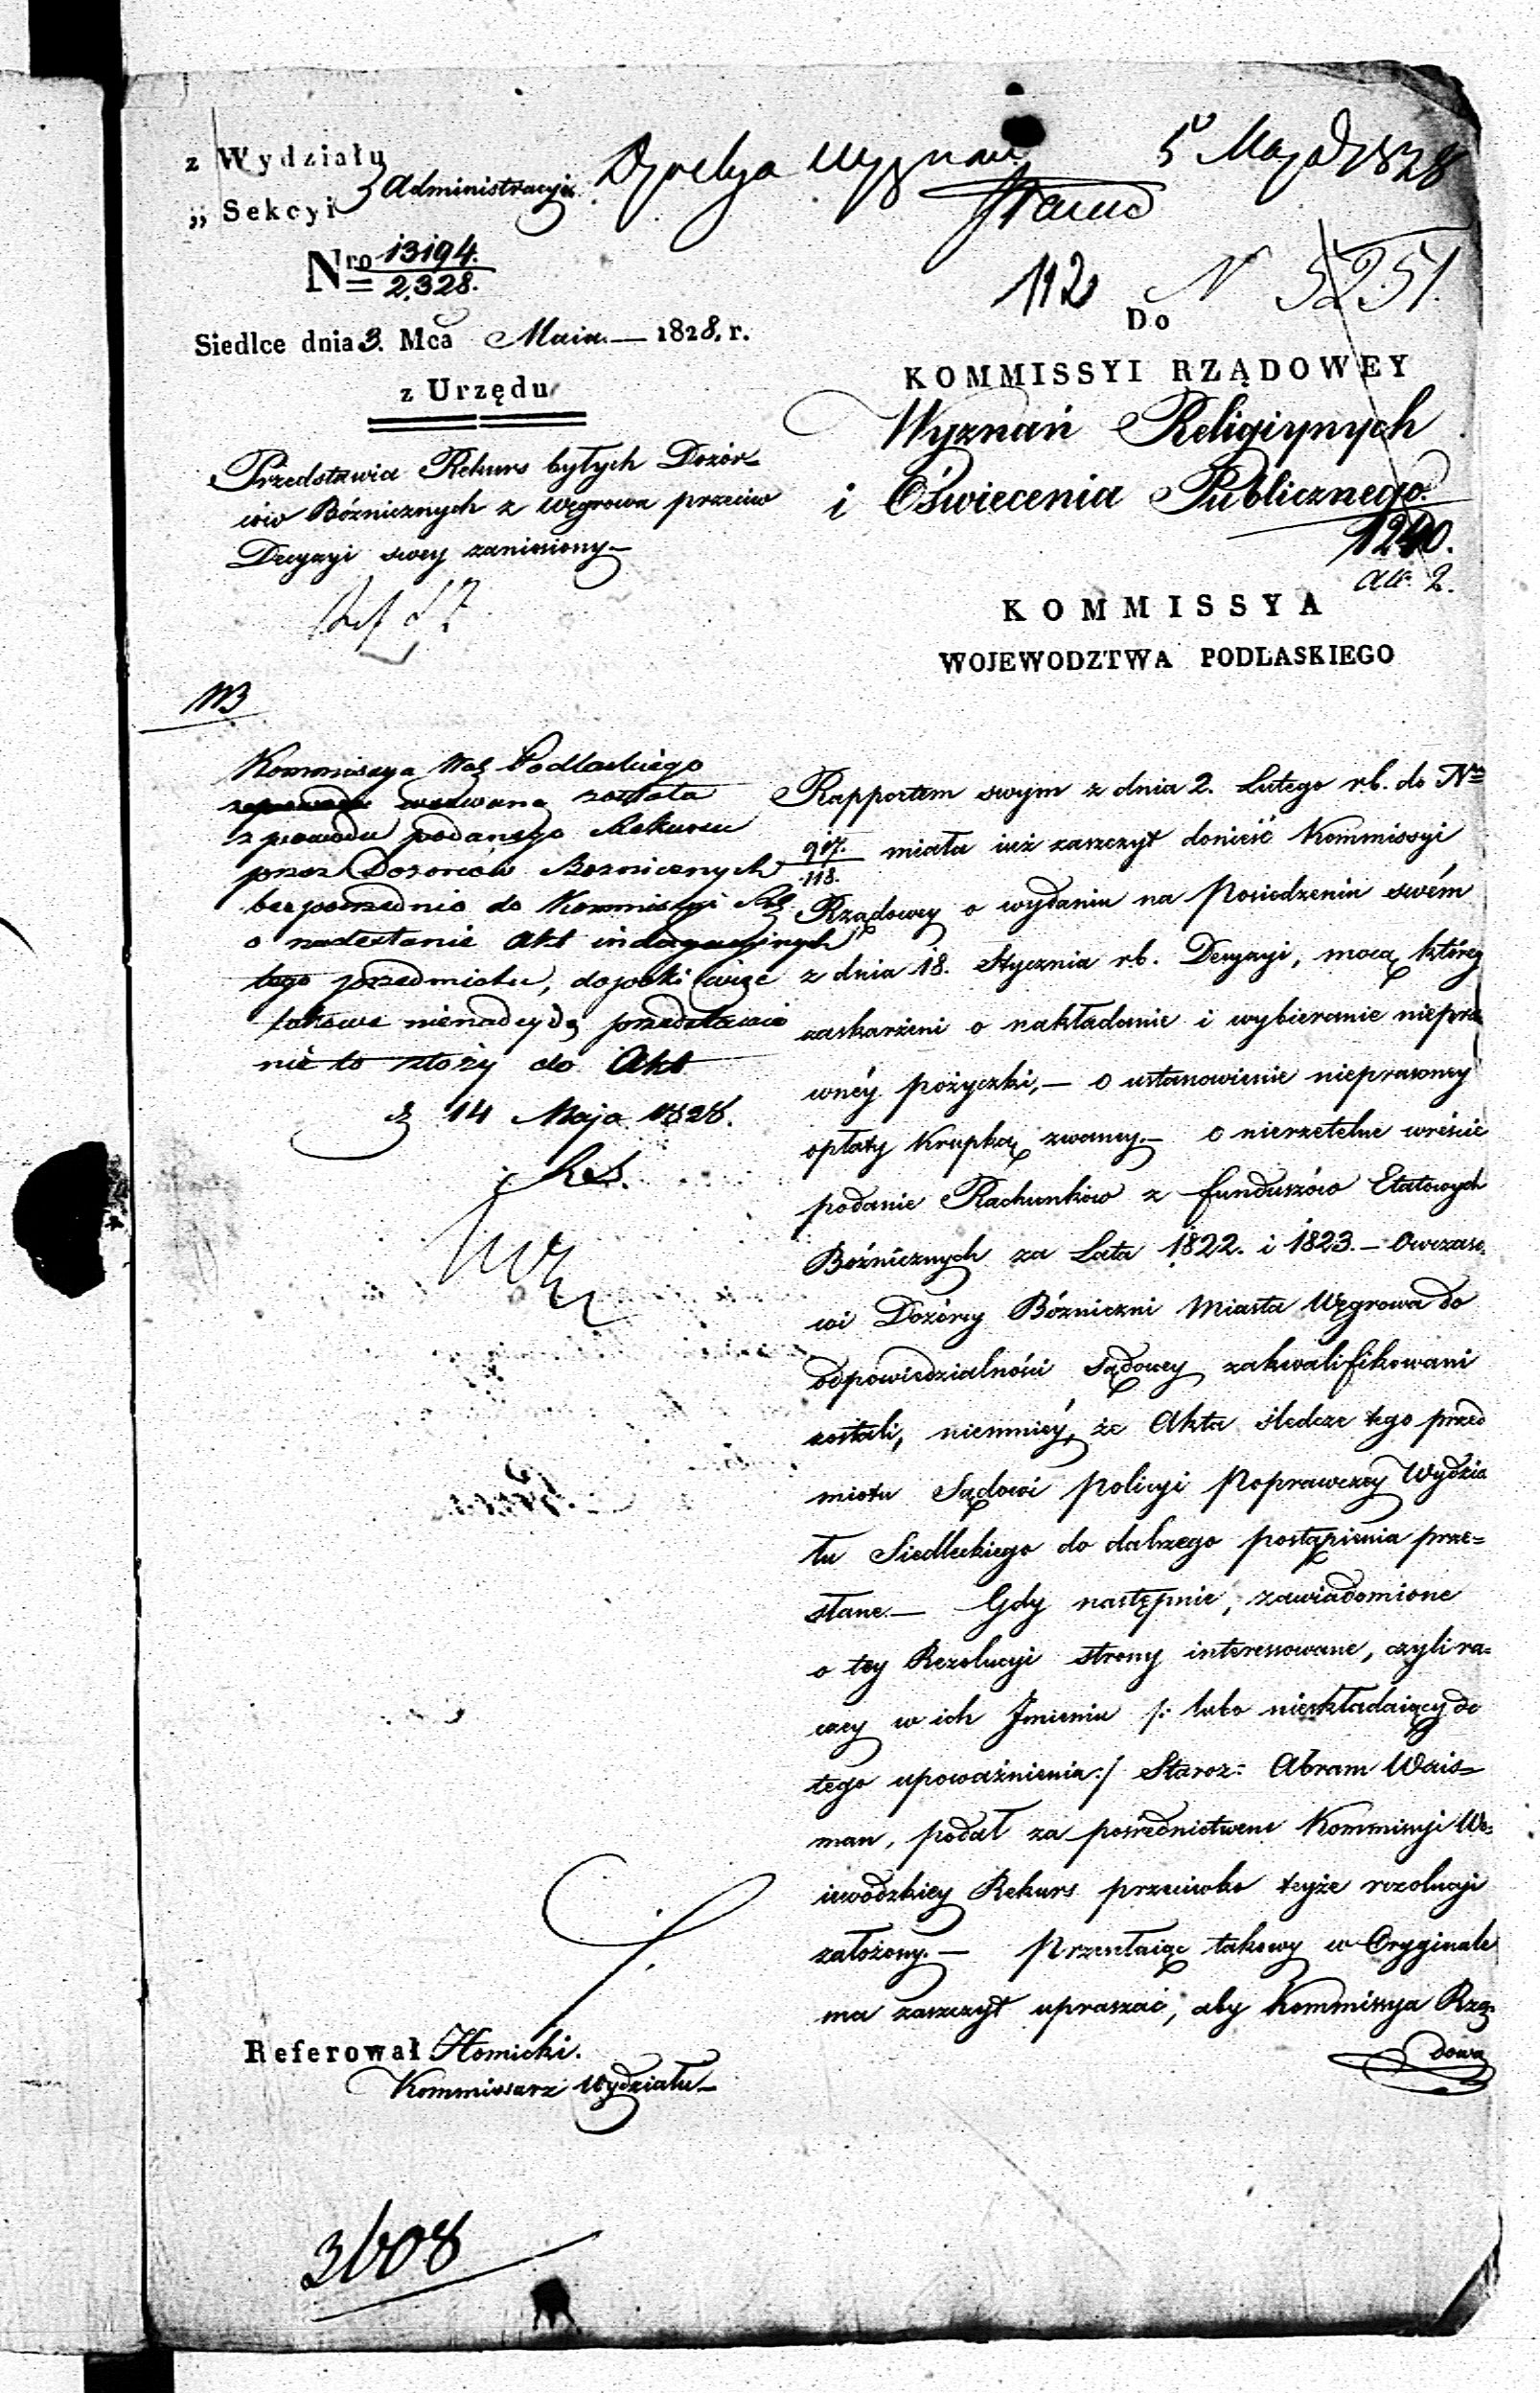 z Wydziału
„ Sekcyi Administracyi
Nro 13194.
2,328.
Siedlce dnia 3. Mca Maia — 1828. r.
z Urzędu
Przedstawia Rekurs byłych Dozór-
ców Bóżnicznych z Węgrowa przeciw
Decyzyi swey zaniesiony —
5 Maja 1828
112 N 5251.
Do
KOMMISSYI RZĄDOWEY
Wyznań Religiynych
i Oświecenia Publicznego.
1240.
2.
KOMMISSYA
WOJEWODZTWA PODLASKIEGO
113
Kommissya Podlaskiego
wezwaną została
z powodu podanego Rekursu
przez Dozorców Boznicznych
bezpośrednio do Kommissyi
o nadesłanie Akt indagacyjnych
tego przedmiotu, dopoki więc
takowe nienadeydą przedstawie
nie to złoży do Akt
14 Maja 1828.
Rapportem swym z dnia 2. Lutego rb. do Nro
917.
118. miała iuż zaszczyt donieść Kommissyi
Rządowey o wydaniu na Posiedzeniu swém
z dnia 18. Stycznia rb. Decyzyi, mocą którey
zaskarżeni o nakładanie i wybieranie niepra
wnéy pożyczki, — o ustanowienie nieprawney
opłaty Krupką zwaney. — o nierzetelne wreście
podanie Rachunków z funduszów Etatowych
Bóżnicznych za Lata 1822. i 1823. — Owczaso-
wi Dozórcy Bózniczni Miasta Węgrowa do
odpowiedzialności Sądowey zakwalifikowani
zostali, niemniéy, że Akta śledcze tego przed
miotu Sądowi Policyi Poprawczey Wydzia
łu Siedleckiego do dalszego postąpienia prze=
słane. — Gdy następnie, zawiadomione
o tey Rezolucyi strony interessowane, czyli ra=
czey w ich Jmieniu /: lubo nieskładaiący do
tego upoważnienia :/ Staroz: Abram Wais=
man, podał za pośrednictwem Kommissyi Wo=
iewódzkiey Rekurs przeciwko teyże rezolucyi
założony. — Przesłaiąc takowy w Oryginale
ma zaszczyt upraszać, aby Kommissya Rzą-
dowa
Referował Homicki.
Kommissarz Wydziału —
3608